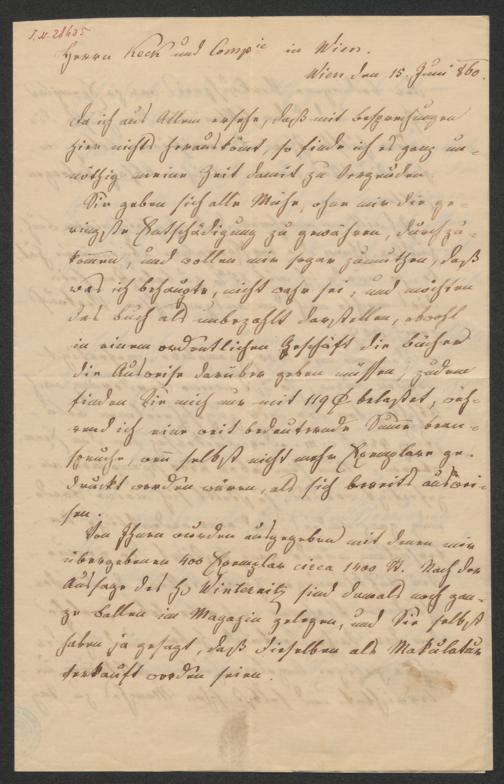 I. N. 21635
Herrn Keck und Compie in Wien.
Wien den 15. Juni 860.
Da ich aus Allem ersehe, daß mit Besprechungen
hier nichts herauskömt, so finde ich es ganz un-
nöthig meine Zeit damit zu vergeuden.
Sie geben sich alle Mühe, ohne mir die ge-
ringste Entschädigung zu gewähren, durchzu-
kommen, und wollen mir sogar zumuthen, daß
was ich behaupte, nicht wahr sei, und möchten
das Buch als unbezahlt darstellen, obwohl
in einem ordentlichen Geschäft die Bücher
die Ausweise darüber geben müssen, zudem
finden Sie mich nur mit 119 belastet, wäh-
rend ich eine weit bedeutende Sume bean-
spruche, wen selbst nicht mehr Exemplare ge-
druckt worden wären, als sich bereits auswei-
sen.
Von Ihnen wurden ausgegeben mit denen mir
übergebenen 400 Exemplar circa 1400 St. Nach der
Aussage des H Winternitz sind damals noch gan-
ze Ballen im Magazin gelegen, und Sie selbst
haben ja gesagt, daß dieselben als Makulatur
verkauft worden seien.